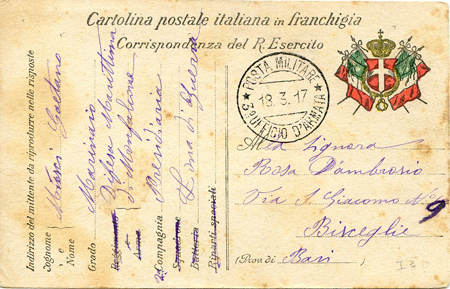 Cartolina postale italiana in franchigia
Corrispondenza del R. Esercito
POSTA MILITARE
18.3.17
3° UFFICIO D'ARMATA
Alla Signora
Rosa D'ambrosio
Via S Giacomo N° 9
Bisceglie
(Prova di Bari
Indirizzo del mittente da riprodurre nelle risposte
Cognome
e
Nome
Gaetano
Grado Marinaio
Reggimento Difesa Marittima
o
Arma di Monfalcone
2a Compagnia Presidiaria
Squadrone
Batteria Zona di Guerra
Riparti speciali